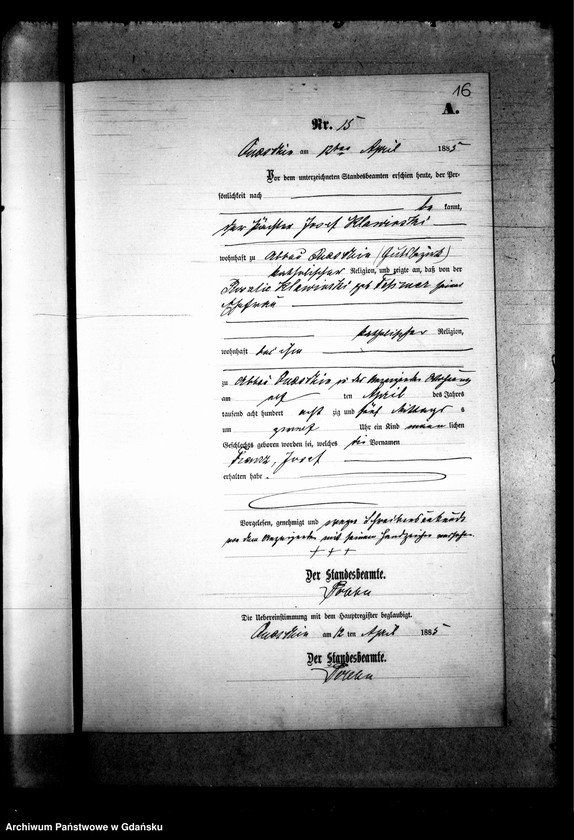 16
A.
Nr. 15
am 12ten April 1885
Vor dem unterzeichneten Standesbeamten erschien heute, der Per-
sönlichkeit nach
be kannt,
der Pächter Josef Klawinski
wohnhaft zu Abbau (Gutsbezirk)
katholischer Religion, und zeigte an, daß von der
Rosalie Klawinski geb. seiner
Ehefrau
katholischer Religion,
wohnhaft bei ihm
zu Abbau in der Wohnung
am elf ten April des Jahres
tausend acht hundert acht zig und fünf Mittags s
um zwölf Uhr ein Kind männ lichen
Geschlechts geboren worden sei, welches die Vornamen
Franz, Josef
erhalten habe.
Vorgelesen, genehmigt und wegen Schreibensunkunde
von dem Anzeigenden mit seinem Handzeichen versehen
+ + +
Der Standesbeamte.
Die Uebereinstimmung mit dem Hauptregister beglaubigt.
am 12 ten April 1885
Der Standesbeamte.
Archiwum Państwowe w Gdańsku